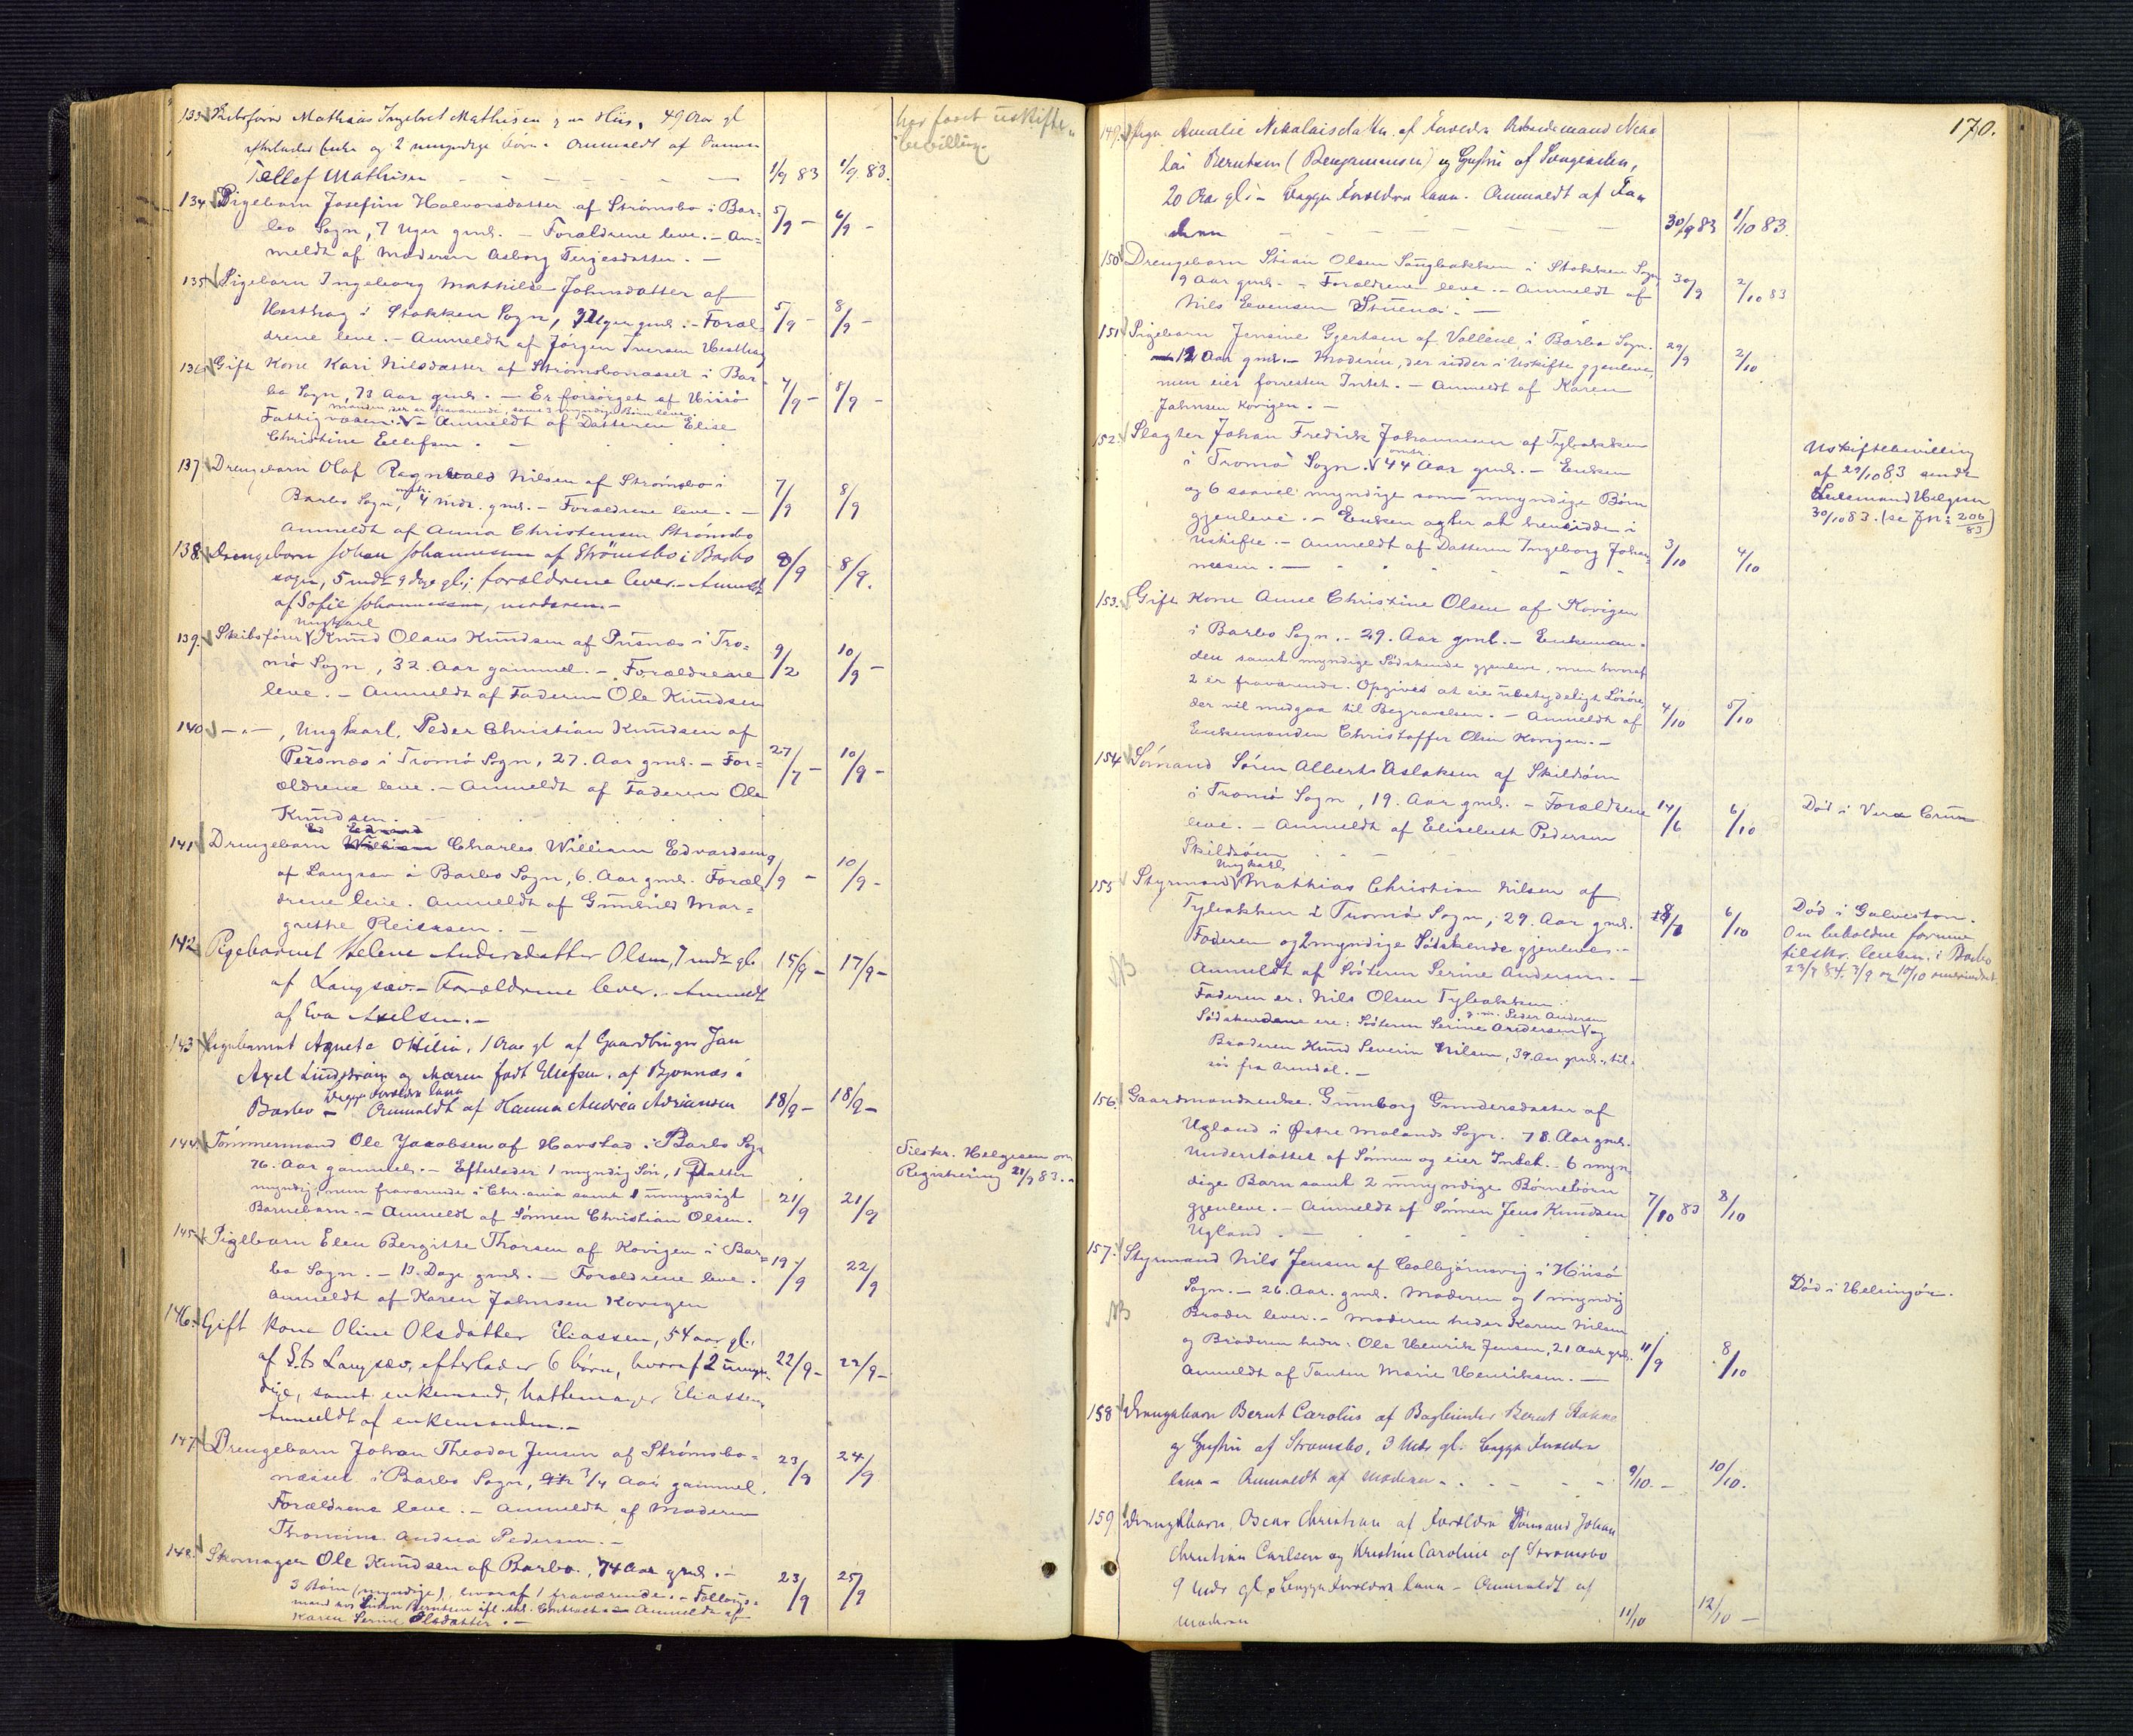 133 Skibsfører Mathias Ingebret Mathisen af Hiis, 49 Aar gl
efterlader Enke og 2 umyndige børn. Anmeldt af
Tellef Mathisen 1/9 83 1/9 83.
har faaet uskifte
bevilling
134 Pigebarn Josefine Halvorsdatter af Strømsbo i Bar=
bo Sogn, 7 Uger gml. – Forældrene leve. – An= 5/9 – 6/9 –
meldt af Moderen Asborg Terjesdatter. –
135 Pigebarn Ingeborg Mathilde Johnsdatter af
i Stokken Sogn, Uger gml. – Foræl= 5/9 – 8/9 –
drene leve. – Anmeldt af Jørgen Iversen
136 Gift Kone Kari Nilsdatter af Strømsbonæsset i Bar=
bo Sogn, 73 Aar gml. – Er forsørget af Hisø 7/9 – 8/9 –
Manden, der er fraværende, samt 3 myndige Børn leve.
Fattigvæsen. – Anmeldt af Datteren Elise
Christine Ellefsen.
137 Drengebarn Olaf Ragnvald Nilsen af Strømsbo i
Barbo Sogn, omtr. 4 Mdr. gml. – Forældrene leve. – 7/9 8/9
Anmeldt af Anna Christensen Strømsbo
138. Drengebarn Johan Johannesen af Strömsbo i Barbo
sogn, 5 mdr 9 dage gl; forældrene lever. – Anmeldt 8/9 8/9.
af Sofie Johannessen, moderen. –
139. Skibsfører Ungkarl Knud Olaus Knudsen af Pusnæs i Tro=
mø Sogn, 32. Aar gammel. – Forældrene 9/2 10/9 –
leve. – Anmeldt af Faderen Ole Knudsen
140 – „ – , Ungkarl, Peder Christian Knudsen af
Pusnæs i Tromø Sogn, 27. Aar gml. – For= 27/7 – 10/9 –
ældrene leve. – Anmeldt af Faderen Ole
Knudsen.
141 Drengebarn Charles William Edvardsen
af Langsæv i Barbo Sogn, 6. Aar gml. Foræl 9/9 – 10/9 –
drene leve. Anmeldt af Gunhild Mar=
grethe Reiersen. –
142 Pigebarnet Helene Andersdatter Olsen, 7 mdr gl. 15/9 – 17/9 –
af Langsæv. – Forældrene lever. – Anmeldt
af Eva Axelsen. –
143 Pigebarnet Agneta Otilia, 1 Aar gl af Gaardbruger Jan
Axel Lindstrøm og Maren født Ellefsen, af Bjonnæs i
Begge Forældre leve
Barbo – Anmeldt af Hanna Andrea Adriansen 18/9 – 18/9 –
144. Tømmermand Ole Jacobsen af Harstad i Barbo Sogn
76. Aar gammel. – Efterlader 1 myndig Søn, 1 Datter
myndig, men fraværende i Chr.ania samt 1 umyndigt 21/9 21/9
Barnebarn. – Anmeldt af Sønnen Christian Olsen.
Tilskr. Helgesen om
Registrering 21/9 83.
145. Pigebarn Elen Bergitte Thorsen af Kovigen i Bar=
bo Sogn. – 13. Dage gml. – Forældrene leve. 19/9 22/9
Anmeldt af Karen Johnsen Kovigen
146. Gift kone Oline Olsdatter Eliassen, 54 aar gl.
af St. Langsæv, efterlader 6 børn, hvoraf 2 umyn 22/9 – 22/9 –
dige, samt enkemand, hattemager Eliassen
Anmeldt af enkemanden. –
147. Drengebarn Johan Theodor Jensen af Strømsbo=
næsset i Barbo Sogn, 3/4 Aar gammel. 23/9 24/9
Forældrene leve. – Anmeldt af Moderen
Thomine Andrea Pedersen. –
148. Skomager Ole Knudsen af Barbo, 74 Aar gml. –
3 Børn (myndige), hvoraf 1 fraværende. – 23/9 25/9
Anmeldt af
Karen Serine Olsdatter. –
170.
149. Pige Amalie Nikolaisdatter af Forældre Arbeidsmand Niko
lai Berntsen (Benjaminsen) og Hustru af Songekilen,
20 Aar gl. – Begge Forældre leve. Anmeldt af Fa
deren 30/9 83 1/10 83.
150 Drengebarn Stian Olsen Sangbakken i Stokken Sogn
9 Aar gml. – Forældrene leve. – Anmeldt af 30/9 2/10 83
Nils Evensen Stuenæs. –
151 Pigebarn Jensine Gjertsen af Vollene i Barbo Sogn.
12 Aar gml. – Moderen, der sidder i Uskifte gjenlever, 29/9 2/10
men eier forresten Intet. – Anmeldt af Karen
Johnsen Kovigen. –
152. Slagter Johan Fredrik Johannesen af Tybakken
i Tromø Sogn. omtr. 44 Aar gml. – Enken
og 6 saavel myndige som umyndige Børn
gjenleve. – Enken agter at hensidde i
Uskifte. – Anmeldt af Datteren Ingeborg Johan= 3/10 4/10
nesen. –
Uskiftebevilling
af 29/10 83 sendt
Lensmand Helgesen
30/10 83. (se Jn: 206/83)
153. Gift Kone Anne Christine Olsen af Kovigen
i Barbo Sogn. – 29. Aar gml. – Enkeman=
den samt myndige Sødskende gjenleve, men hvoraf
2 er fraværende. Opgives at eie ubetydeligt Løsøre,
der vil medgaa til Begravelsen. – Anmeldt af 4/10 5/10
Enkemanden Christoffer Olsen Kovigen. –
154 Sømand Søren Albert Aslaksen af Skildsøen
i Tromø Sogn, 19. Aar gml. – Forældrene 14/6 6/10
leve. – Anmeldt af Eliselbeth Pedersen
Skildsøen
Død i Vera Cruz
155 Styrmand Ungkarl Mathias Christian Nilsen af
Tybakken i Tromø Sogn, 29. Aar gml. 6/10
Faderen og 2 myndige Sødskende gjenleve. –
Anmeldt af Søsteren Serine Andersen. –
NB
Faderen er: Nils Olsen Tybakken.
Sødskendene ere: Søsteren Serine Andersen g.m. Peder Andersen og
Broderen Knud Severin Nilsen, 39. Aar gml., til=
søs fra Arendal. –
Død i Galveston.
Om beholdne formue
tilskr. lensm. i Barbo
156. Gaardmandsenke. Gunborg Gundersdatter af
Ugland i Østre Molands Sogn. 78. Aar gml.
Understøttet af Sønnen og eier Intet. – 6 myn
dige Barn samt 2 umyndige Børnebørn
gjenleve. – Anmeldt af Sønnen Jens Knudsen 7/10 83 8/10
Ugland. –
157. Styrmand Nils Jensen af Colbjørnsvig i Hisø
Sogn. – 26. Aar. gml. Moderen og 1 myndig
NB
Broder lever. – Moderen heder Karen Nilsen
og Broderen heder: Ole Henrik Jensen, 21 Aar gml. 11/9 8/10
Anmeldt af Tanten Marie Henriksen. –
Død i Helsingør.
158 Drengebarn Bernt Carolus af Bernt
og Hustru af Strømsbo, 3 Mdr gl. Begge Forældre
leve – Anmeldt af Moderen. 9/10. – 10/10.
159 Drengebarn, Oscar Christian af Forældre Sømand Johan
Christian Carlsen og Kristine Caroline af Strømsbo
9 Mdr gl. Begge Forældre leve – Anmeldt af
Moderen 11/10 12/10 –